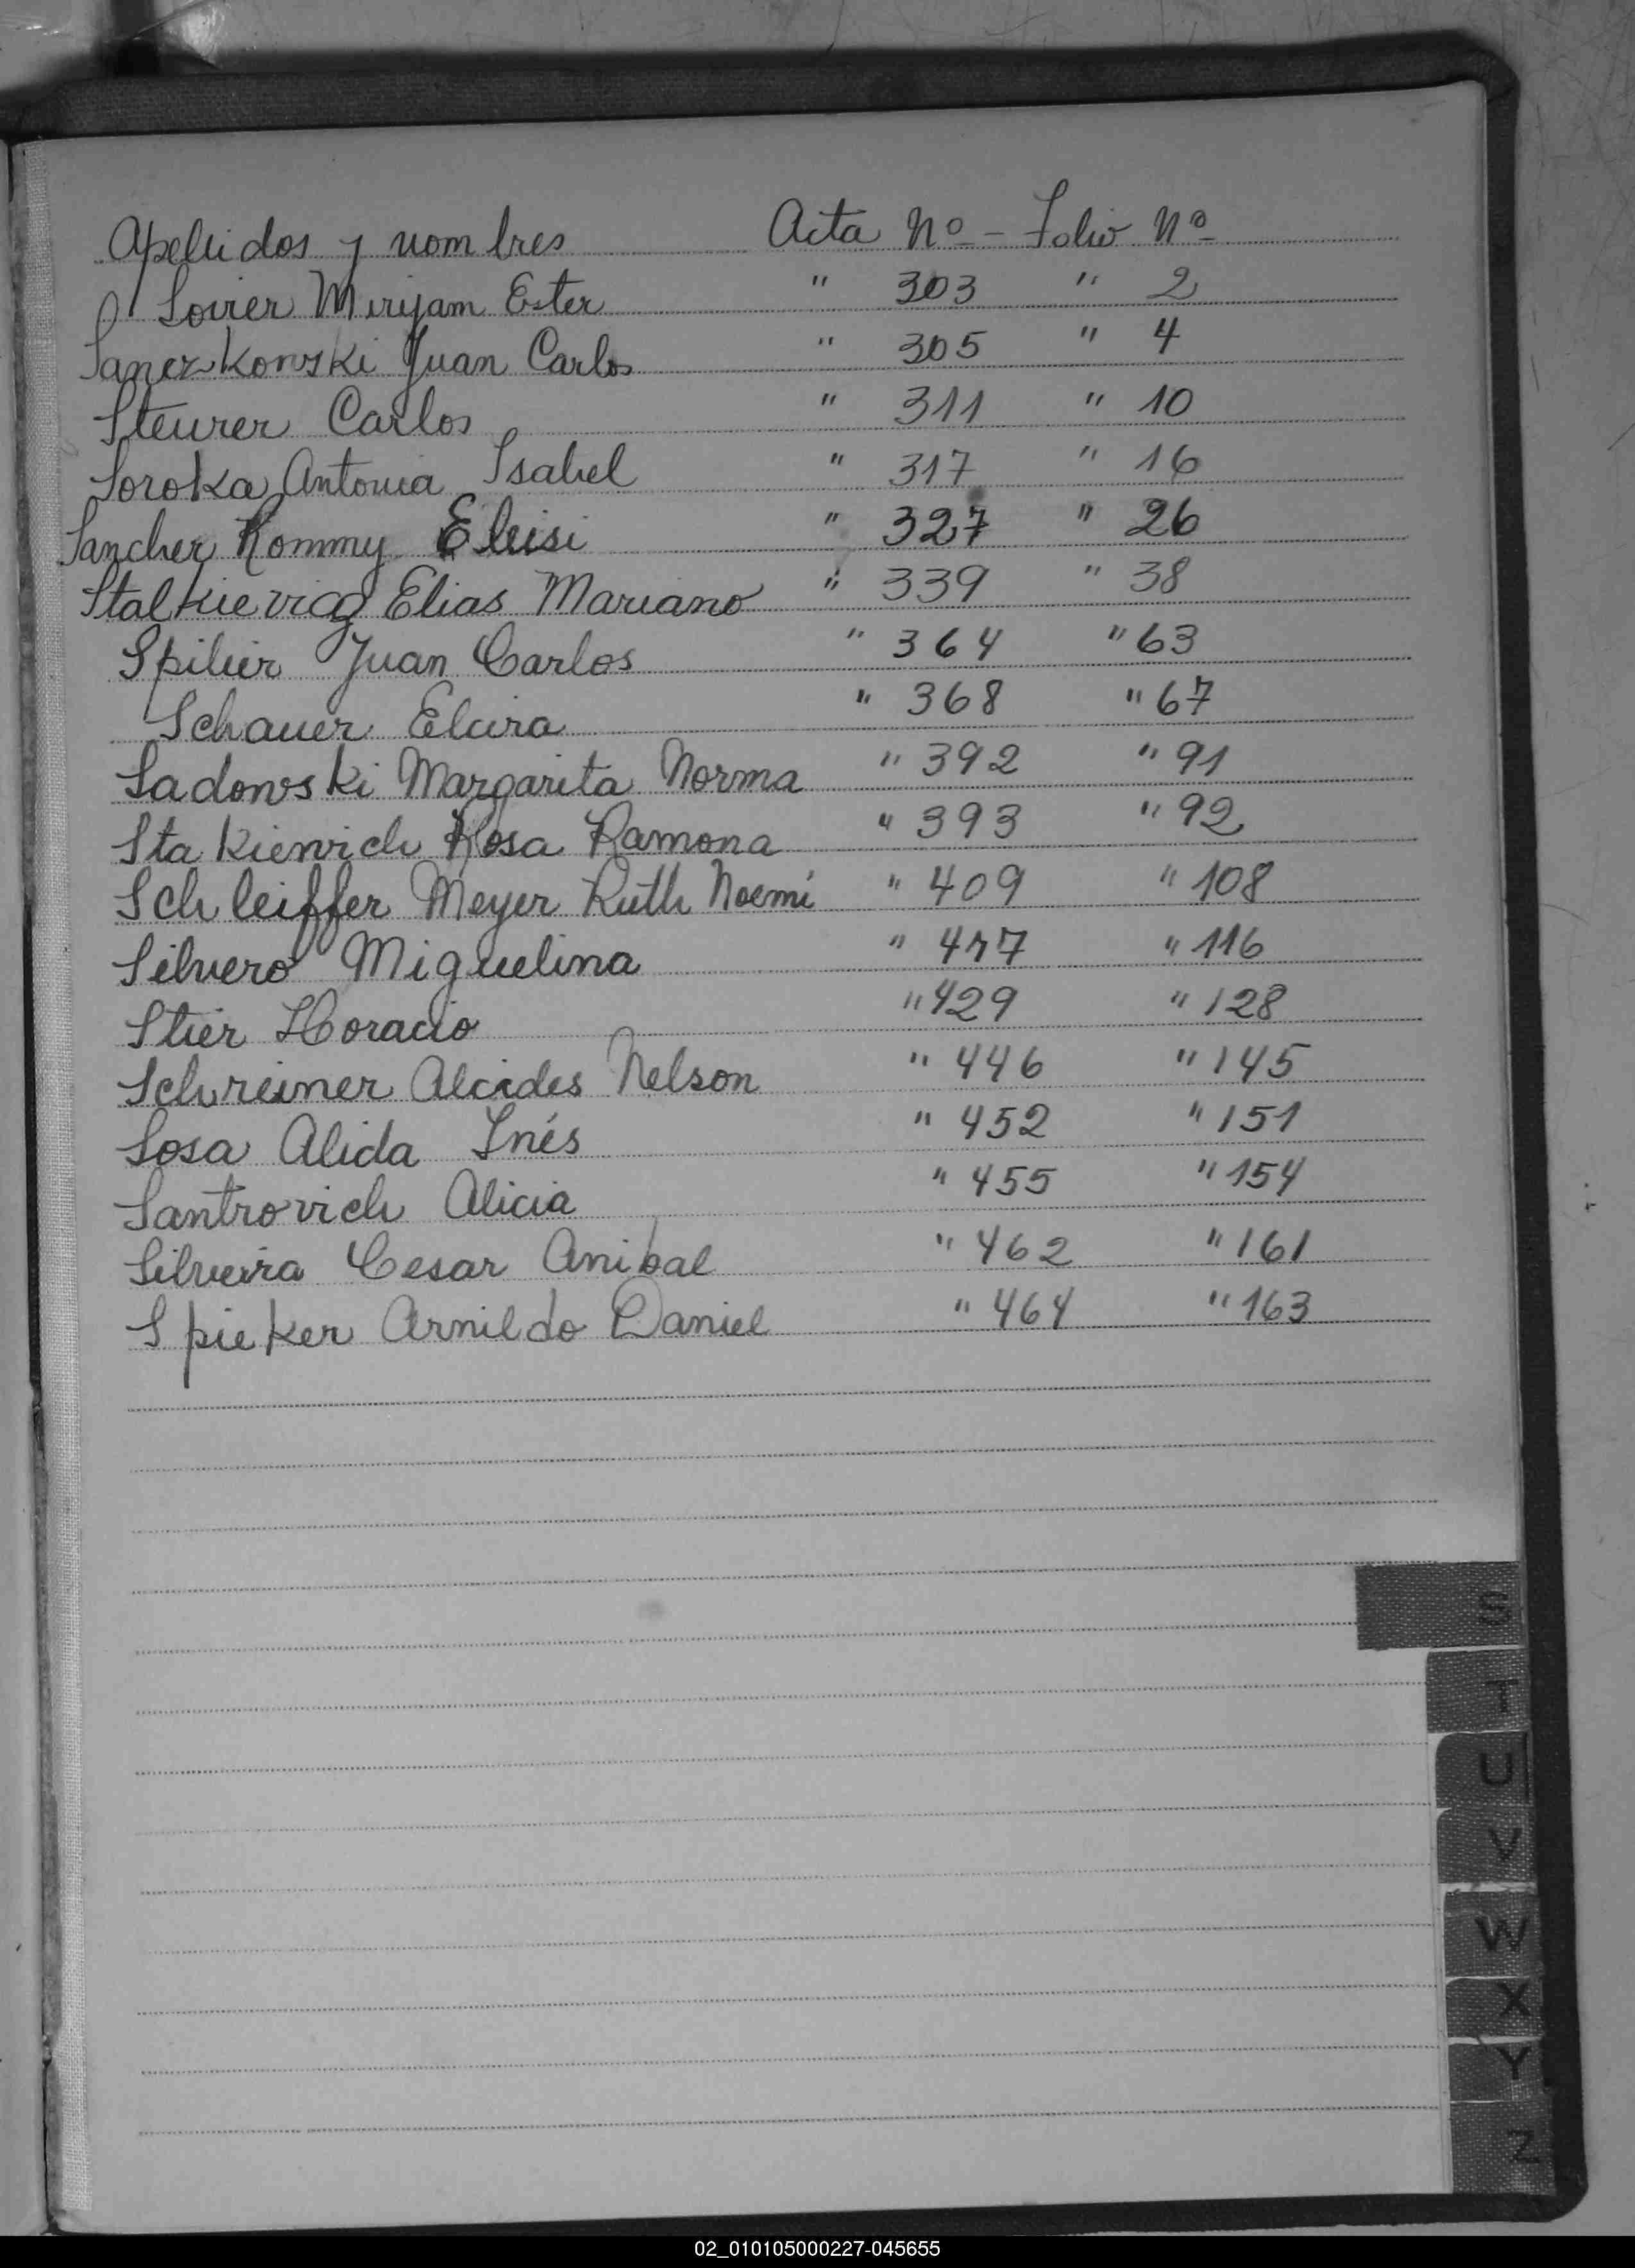 Apellidos y nombres Acta Nº - Folio Nº
Soirer Miryam Ester " 303 " 2
Sanczkowski Juan Carlos " 305 " 4
Steurer Carlos " 311 " 10
Soroka Antonia Isabel " 317 " 16
Sanchez Rommy Eleisi " 327 " 26
Stalkievicz Elias Mariano " 339 " 38
Spilier Juan Carlos " 364 " 63
Schauer Elcira " 368 " 67
Sadowski Margarita Norma " 392 " 91
Stakiewich Rosa Ramona " 393 " 92
Schleiffer Meyer Ruth Noemí " 409 " 108
Silvero Miguelina " 417 " 116
Stier Horacio " 429 " 128
Schreiner Alcides Nelson " 446 " 145
Sosa Alida Inés " 452 " 151
Santrovich Alicia " 455 " 154
Silveira Cesar Anibal " 462 " 161
Spieker Arnildo Daniel " 464 " 163
S
T
U
V
W
X
Y
Z
02_010105000227-045655